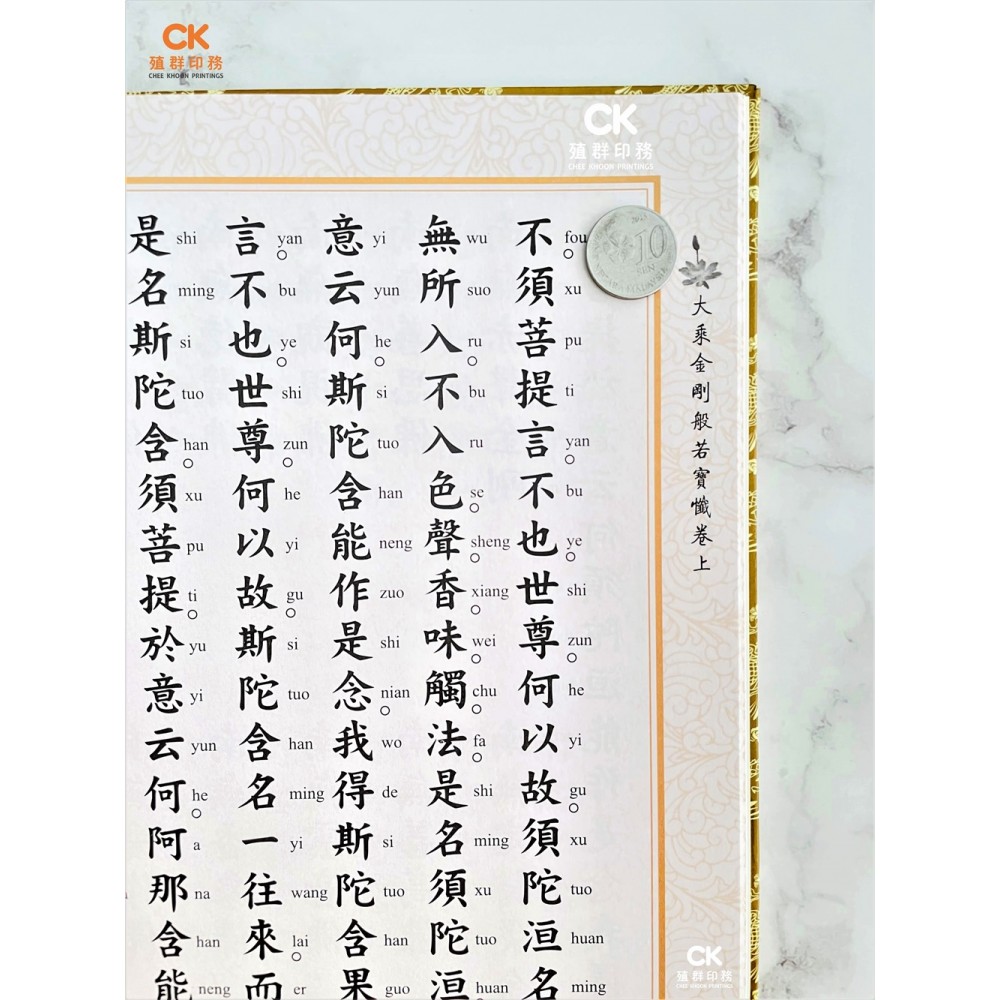 CK
殖群印務
CHEE KHOON PRINTINGS
CK
殖群印務
CHEE KHOON PRINTINGS
10
SEN
大乘金剛般若寶懺卷上
不 fou。須 xu 菩 pu 提 ti 言 yan。不 bu 也 ye。世 shi 尊 zun。何 he 以 yi 故 gu。須 xu 陀 tuo 洹 huan 名 ming
無 wu 所 suo 入 ru。不 bu 入 ru 色 se。聲 sheng。香 xiang。味 wei。觸 chu。法 fa。是 shi 名 ming 須 xu 陀 tuo 洹 huan。
意 yi 云 yun 何 he。斯 si 陀 tuo 含 han 能 neng 作 zuo 是 shi 念 nian。我 wo 得 de 斯 si 陀 tuo 含 han 果 guo
言 yan。不 bu 也 ye。世 shi 尊 zun。何 he 以 yi 故 gu。斯 si 陀 tuo 含 han 名 ming 一 yi 往 wang 來 lai。而 er
是 shi 名 ming 斯 si 陀 tuo 含 han。須 xu 菩 pu 提 ti。於 yu 意 yi 云 yun 何 he。阿 a 那 na 含 han 能 neng
CK
殖群印務
CHEE KHOON PRINTINGS